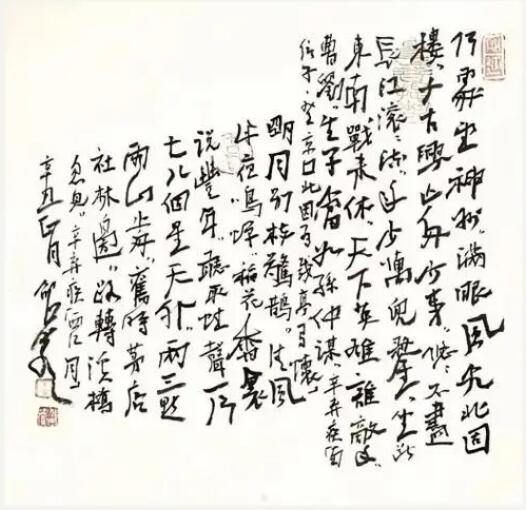 何處望神州滿眼風光北固
樓千古興亡多少事悠悠不盡
長江滾滾流年少萬兜鍪坐斷
東南戰未休天下英雄誰敵手
曹劉生子當如孫仲謀辛弃疾南
鄉子登京口北固亭有懷
明月別枝驚鵲清風
半夜鳴蟬稻花香裏
說豐年聽取蛙聲一片
七八個星天外兩三點
雨山前舊時茅店
社林邊路轉溪橋
忽見辛弃疾西江月
辛丑正月